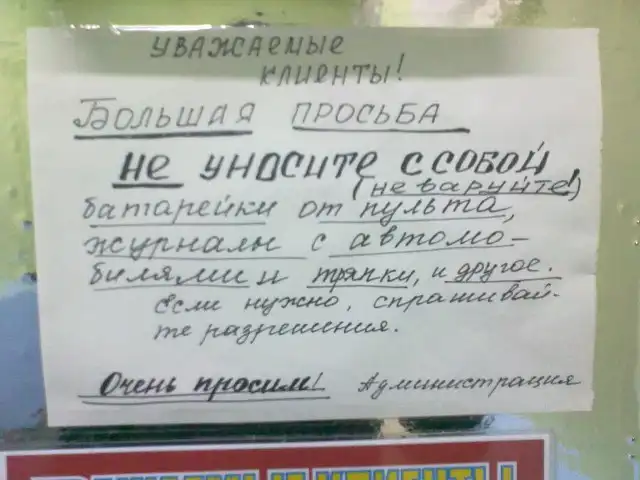 УВАЖАЕМЫЕ
КЛИЕНТЫ!
БОЛЬШАЯ ПРОСЬБА
НЕ УНОСИТЕ С СОБОЙ
(не варуйте!)
батарейки от пульта,
журналы с автомо-
билями и тряпки, и другое.
Если нужно, спрашивай-
те разрешения.
Очень просим! Администрация
КЛИЕНТЫ!